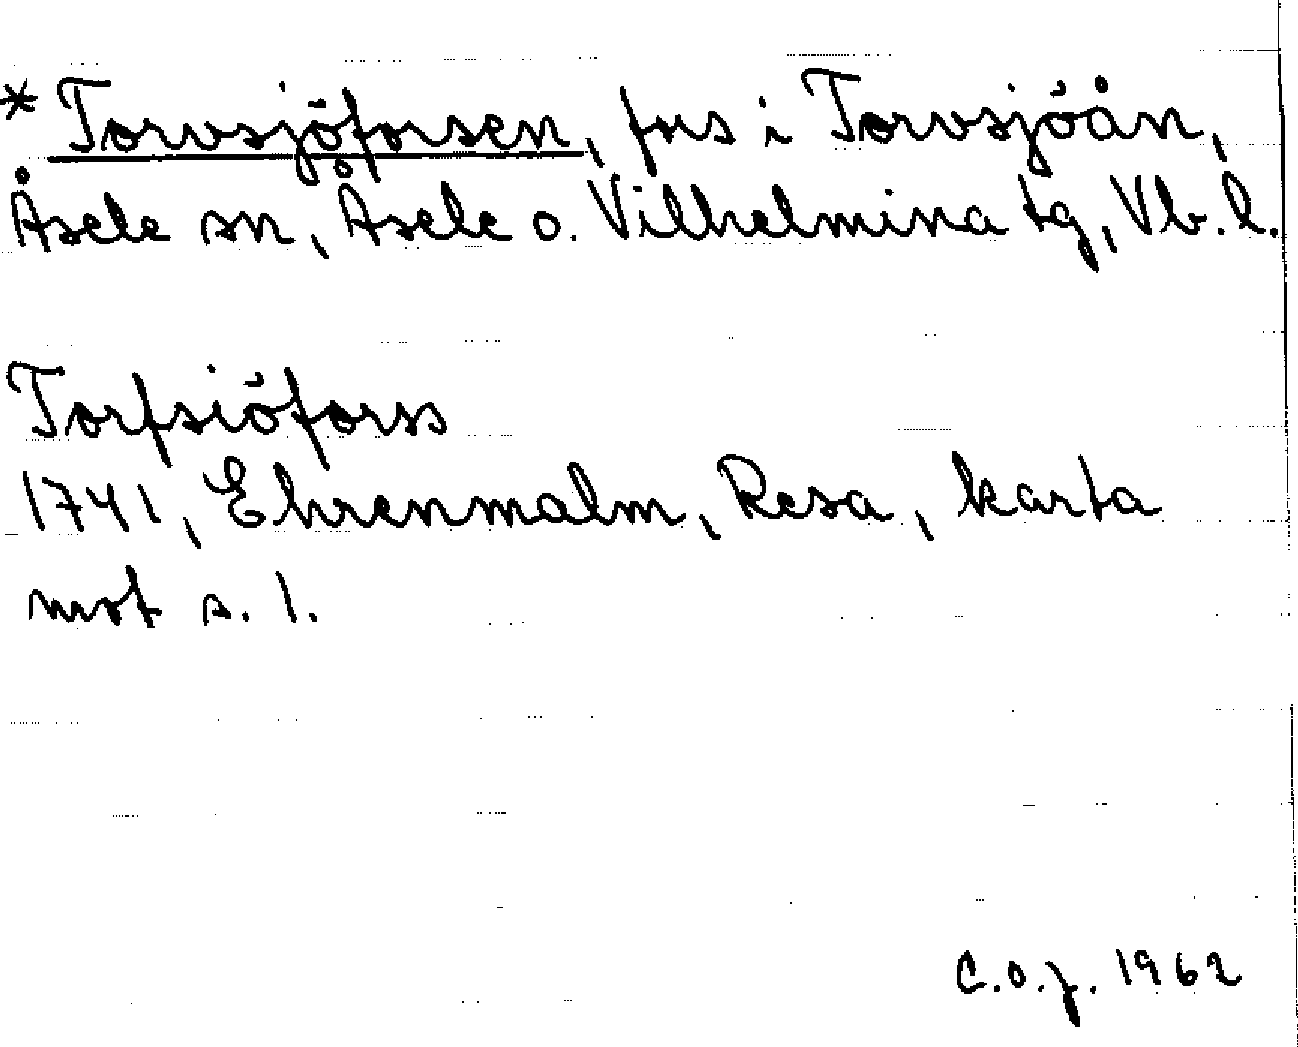 * Torvsjöforsen, fors i Torvsjöån,
Åsele sn, Åsele o. Vilhelmina tg, Vb. l.
Torfsiöforss
1741, Ehrenmalm, Resa, karta
mot s. 1.
C.O.J. 1962